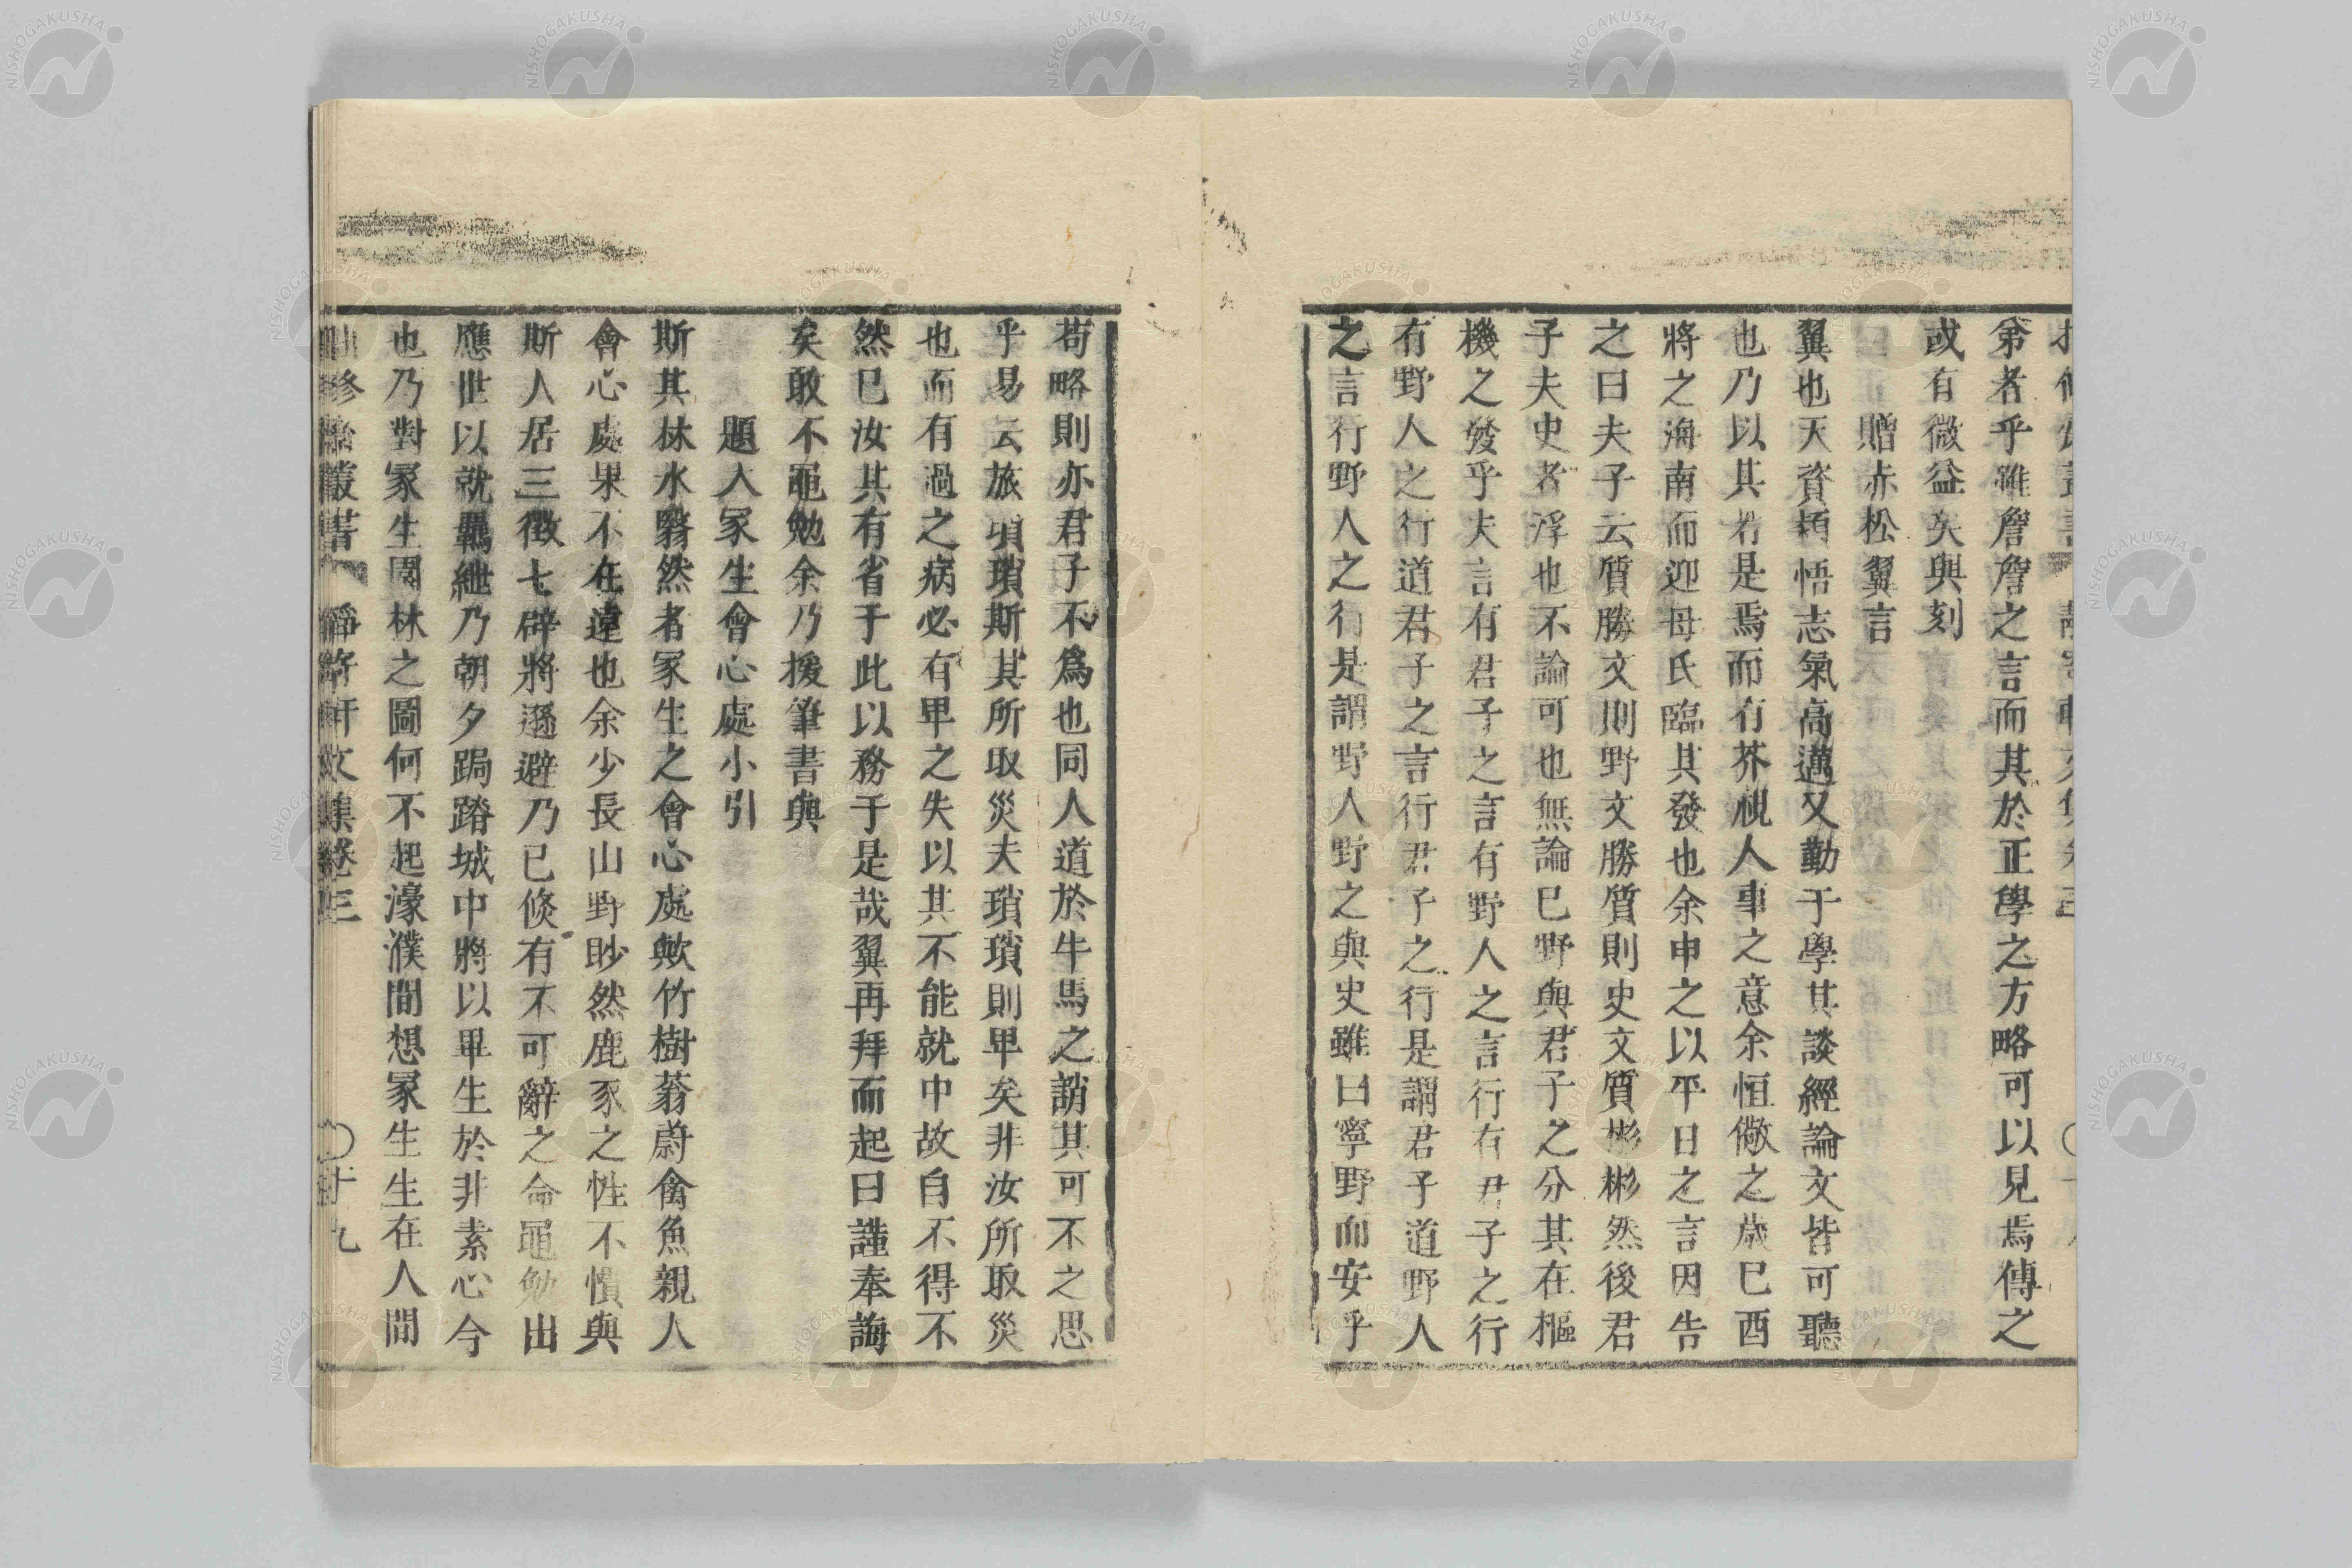 第者乎雖詹詹之言而其於正學之方略可以見焉傳之
或有微益矣與刻
贈赤松翼言
翼也天資穎悟志氣高邁又勤于學其談經論文皆可聽
也乃以其若是焉而有芥視人事之意余恒儆之歲巳酉
將之海南而迎母氏臨其發也余申之以平日之言因告
之曰夫子云質勝文則野文勝質則史文質彬彬然後君
子夫史者浮也不論可也無論已野與君子之分其在樞
機之發乎夫言有君子之言有野人之言行有君子之行
有野人之行道君子之言行君子之行是謂君子道野人
之言行野人之行是謂野人野之與史雖曰寧野而安乎
苟略則亦君子不爲也同人道於牛馬之誚其可不之思
乎易云旅瑣瑣斯其所取災夫瑣瑣則卑矣非汝所取災
也而有過之病必有卑之失以其不能就中故自不得不
然已汝其有省于此以務于是哉翼再拜而起曰謹奉誨
矣敢不黽勉余乃援筆書與
題人冢生會心處小引
斯其林水翳然者冢生之會心處歟竹樹蓊蔚禽魚親人
會心處果不在遠也余少長山野眇然鹿豕之性不慣與
斯人居三徵七辟將遜避乃已倏有不可辭之命黽勉出
應世以就羈紲乃朝夕跼蹐城中將以畢生於非素心今
也乃對冢生園林之圖何不起濠濮間想冢生生在人間
修
叢書
文集卷三
〇十九
NISHOGAKUSHA